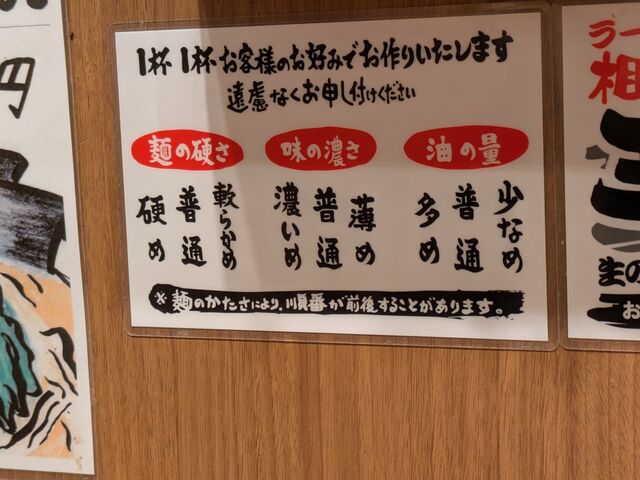 円
1杯1杯お客様のお好みでお作りいたします
遠慮なくお申し付けください
麺の硬さ
硬め
普通
軟らかめ
味の濃さ
濃いめ
普通
薄め
油の量
多め
普通
少なめ
※麺のかたさにより、順番が前後することがあります。
ラー
相
生の
お